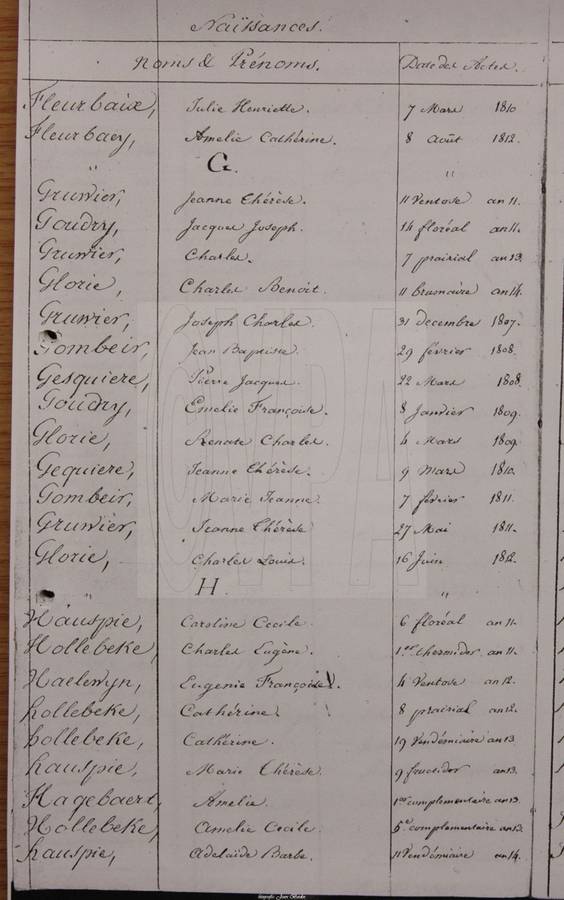 Naissances.
Noms & Prénoms. Date des Actes.
Fleurbaix, Julie Henriette. 7 Mars 1810
Fleurbaey, Amelie Cathérine. 8 Août 1812.
" G. "
Gruwier, Jeanne Thérèse. 11 Ventose an 11.
Goudry, Jacques Joseph. 14 floréal an 11.
Gruwier, Charles. 7 prairial an 13.
Glorie, Charles Benoit. 11 brumaire an 14.
Gruwier, Joseph Charles. 31 decembre 1807.
Gombeir, Jean Baptiste. 29 février 1808.
Gesquiere, Pierre Jacques. 22 Mars 1808.
Goudry, Emelie Françoise. 8 Janvier 1809.
Glorie, Renate Charles. 4 Mars 1809
Gequiere, Jeanne Thérèse. 9 Mars 1810.
Gombeir, Marie Jeanne. 7 février 1811.
Gruwier, Jeanne Thérèse 27 Mai 1811.
Glorie, Charles Louis. 16 Juin 1812.
H. "
Hauspie, Caroline Cecile. 6 floréal an 11.
Hollebeke, Charles Eugène. 1.er thermidor an 11.
Haelewyn, Eugenie Françoise. 4 Ventose an 12.
hollebeke, Cathérine. 8 prairial an 12.
hollebeke, Cathérine. 19 Vendémiaire an 13
hauspie, Marie Thérèse. 9 fructidor an 13.
Hagebaert, Amelie. 1er complementaire an 13.
Hollebeke, Amelie Cecile. 5e complementaire an 13.
hauspie, Adelaïde Barbe. 11 Vendémiaire an 14.